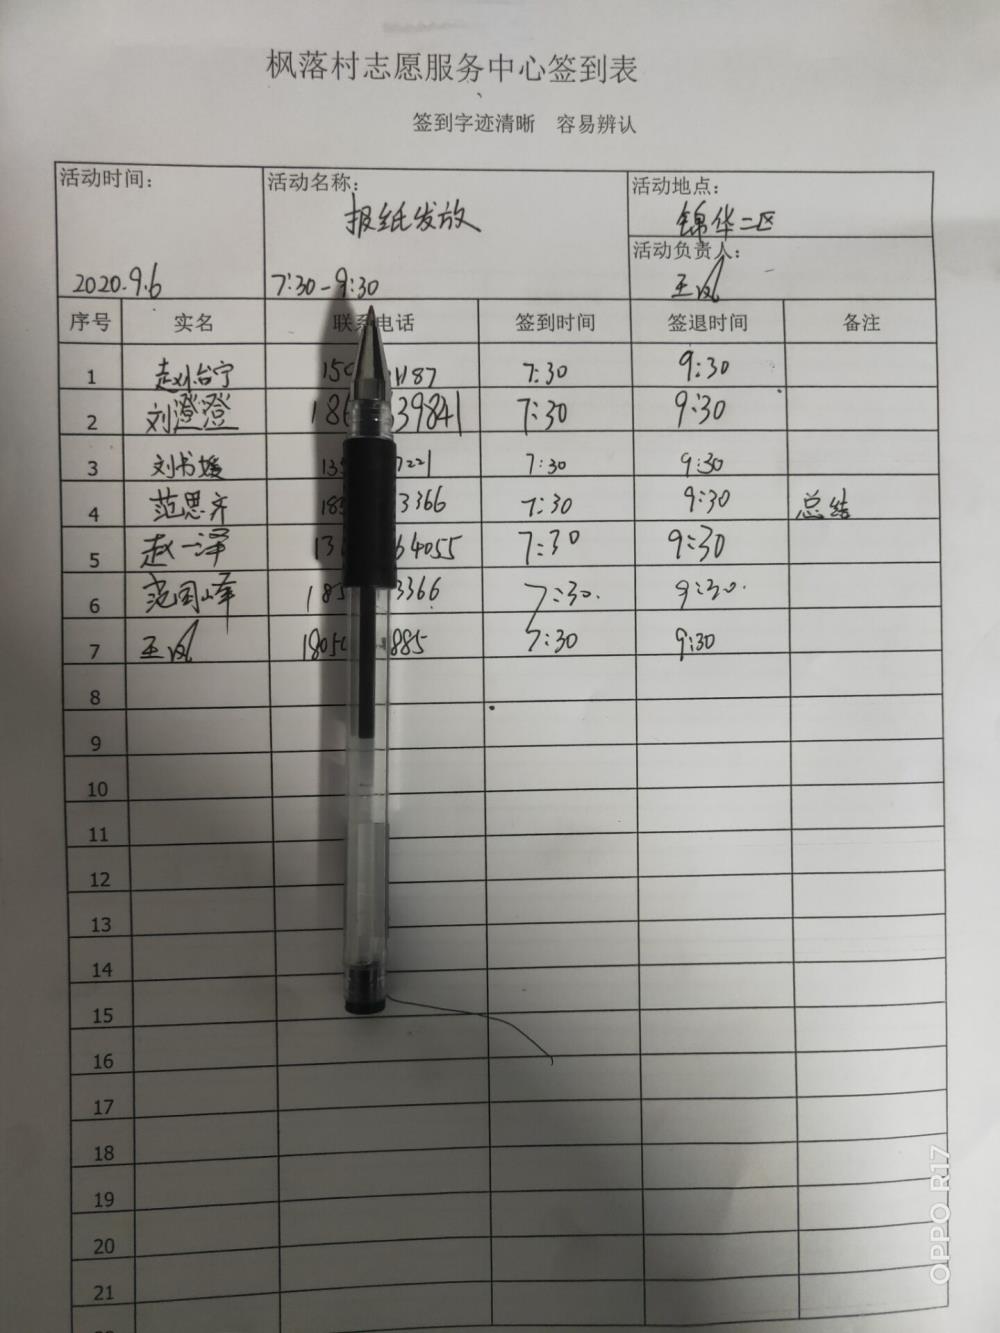 枫落村志愿服务中心签到表
签到字迹清晰 容易辨认
活动时间: 活动名称: 活动地点:
报纸发放 锦华二区
活动负责人:
2020.9.6 7:30-9:30 王凤
序号 实名 联系电话 签到时间 签退时间 备注
1 7:30 9:30
2 刘澄澄 39841 7:30 9:30
3 刘书媛 7221 7:30 9:30
4 范思齐 3366 7:30 9:30 总结
5 赵一泽 64055 7:30 9:30
6 范国峰 3366 7:30. 9:30.
7 王凤 885 7:30 9:30
8
9
10
11
12
13
14
15
16
17
18
19
20
21
OPPO R17